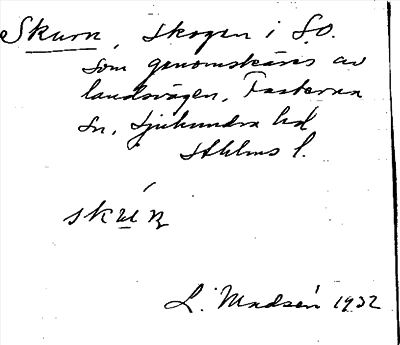 Skurn, skogen i S.O.
som genomskäres av
landsvägen, Fasterna
sn, Sjuhundra hd
Sthlms l.
skúṇ
L. Madsén 1932